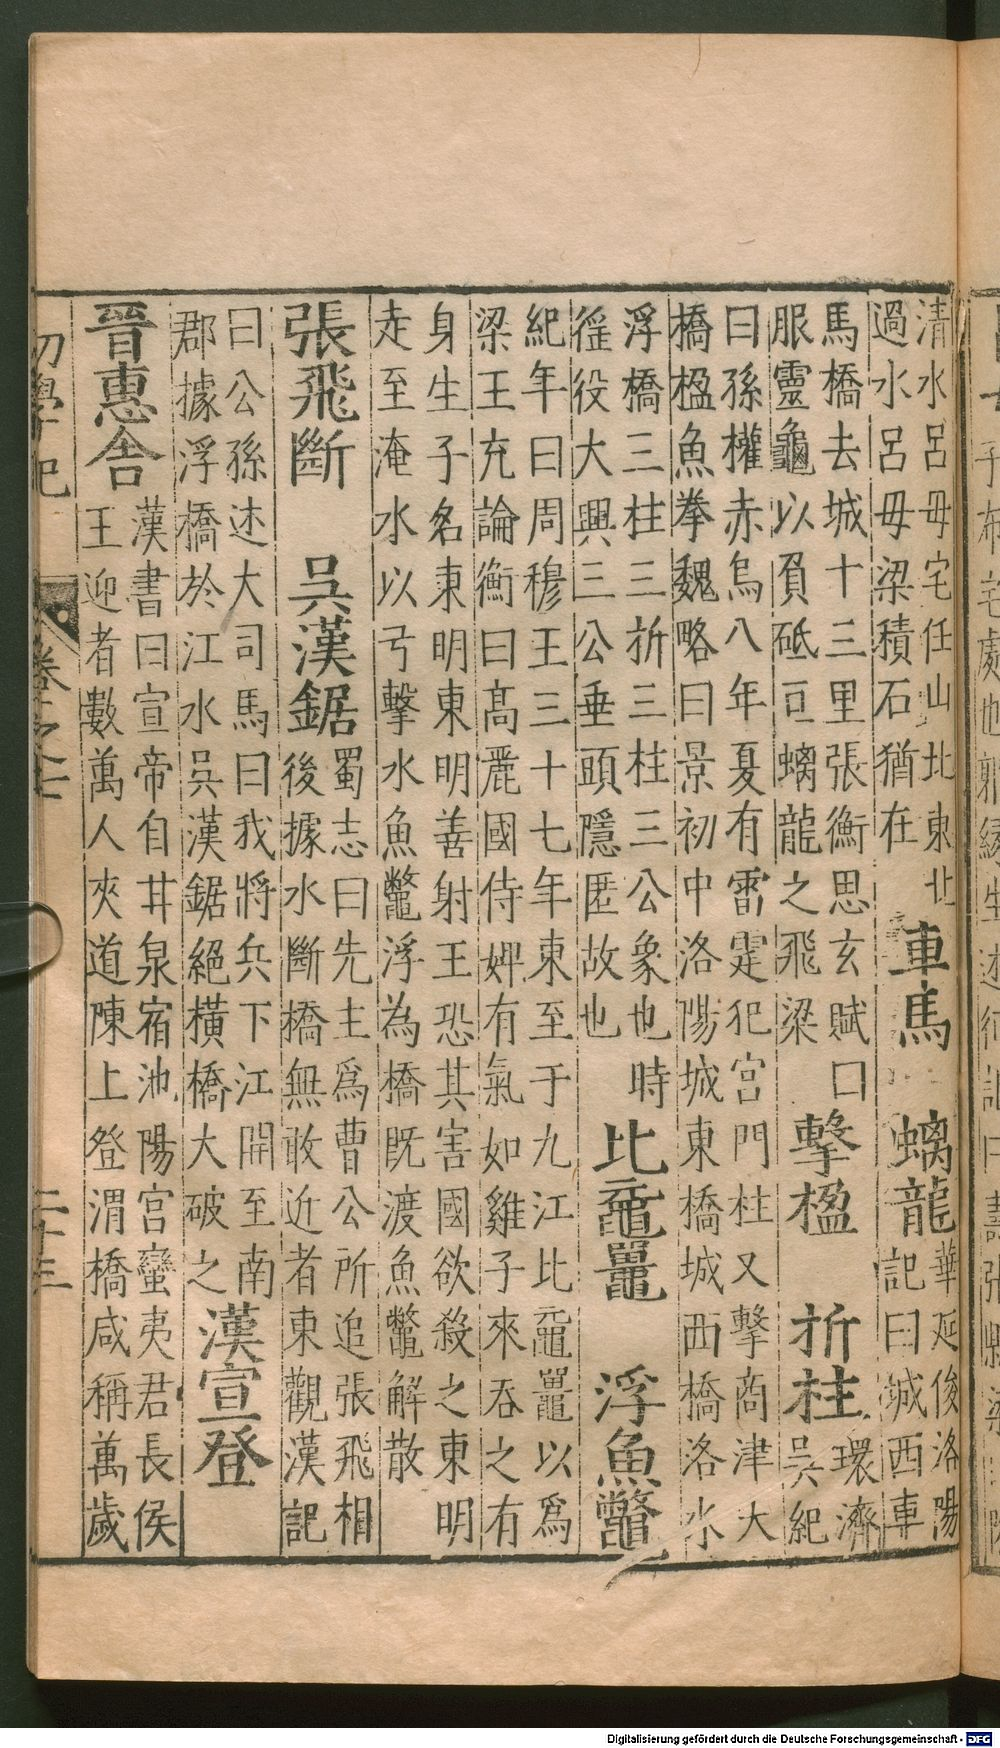 清水呂毋宅任山北東北
過水呂毋梁積石猶在
車馬　螭龍
華延俊洛陽
記曰城西車
馬橋去城十三里張衡思玄賦口
服靈龜以負砥亘螭龍之飛梁
擊楹　折柱
環濟
吳紀
曰孫權赤烏八年夏有雷霆犯宮門柱又擊商津大
橋楹魚拳魏略曰景初中洛陽城東橋城西橋洛水
浮橋三柱三折三柱三公象也時
徭役大興三公垂頭隱匿故也
比黿鼉　浮魚鼈
紀年曰周穆王三十七年東至于九江比黿鼉以爲
梁王充論衡曰高麗國侍婢有氣如雞子來吞之有
身生子名東明東明善射王恐其害國欲殺之東明
走至淹水以弓擊水魚鼈浮為橋既渡魚鼈解散
張飛斷　吳漢鋸
蜀志曰先主爲曹公所追張飛相
後據水斷橋無敢近者東觀漢記
曰公孫述大司馬曰我將兵下江関至南
郡據浮橋於江水吳漢鋸絕橫橋大破之
漢宣登
晉惠舍
漢書曰宣帝自甘泉宿池陽宮蠻夷君長侯
王迎者數萬人夾道陳上登渭橋咸稱萬歲
初學記　卷之七　二十三
Digitalisierung gefördert durch die Deutsche Forschungsgemeinschaft - DFG